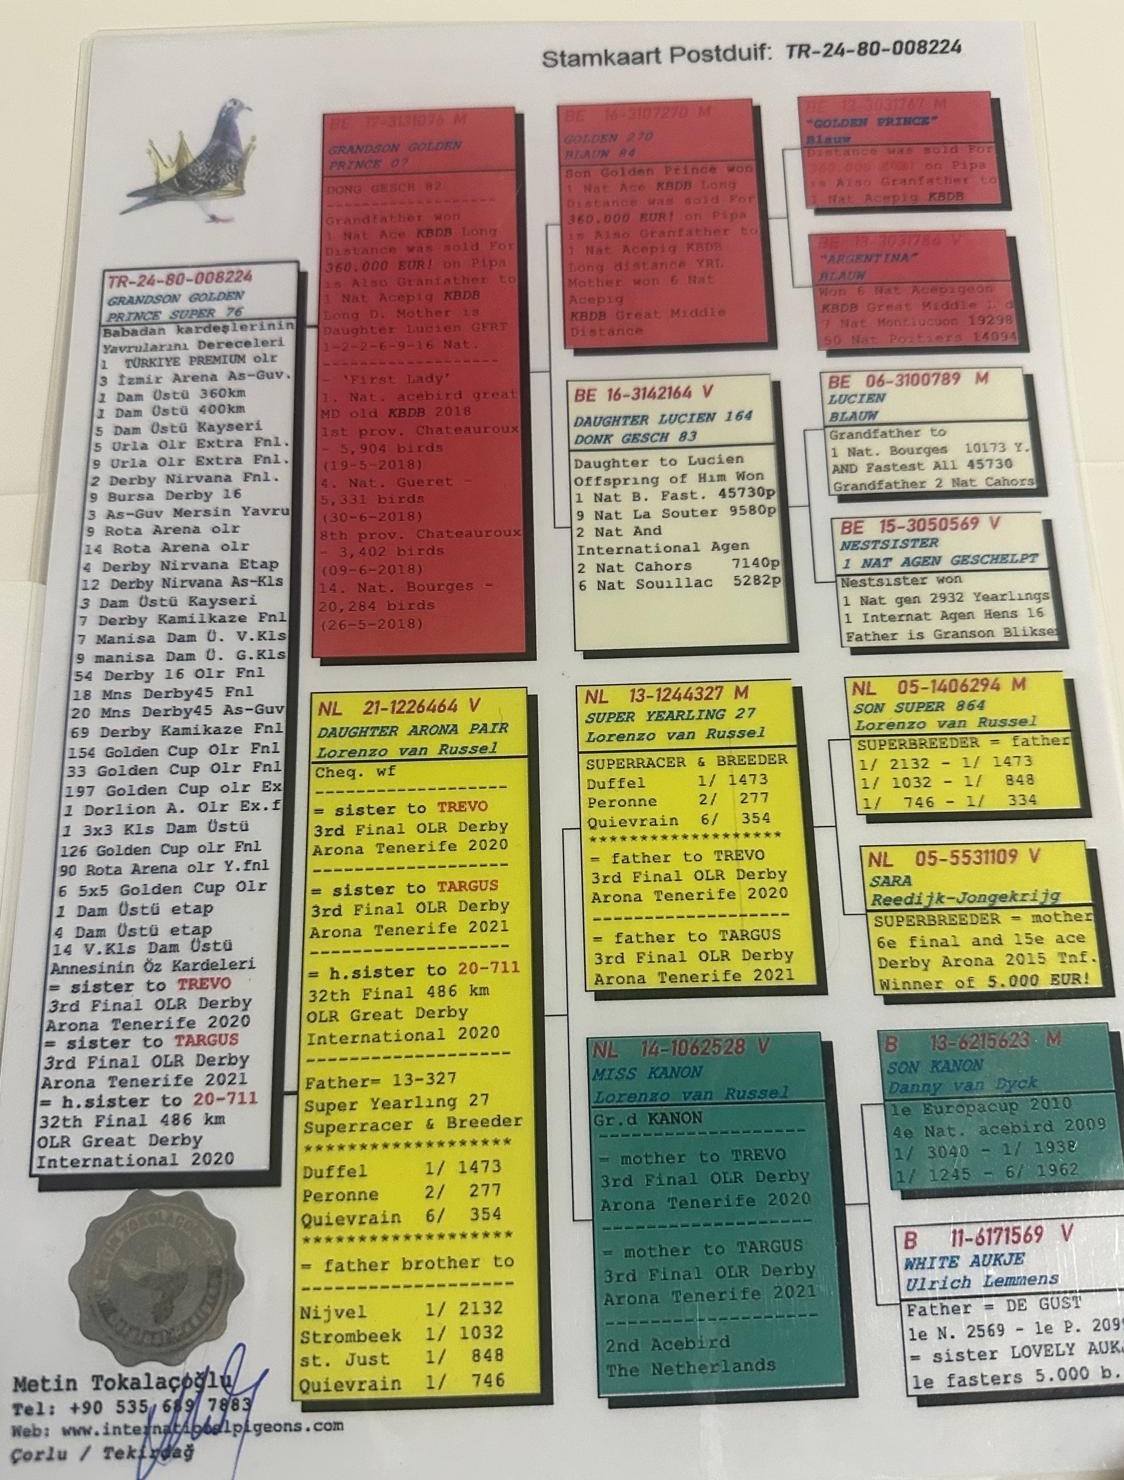 Stamkaart Postduif: TR-24-80-008224
TR-24-80-008224
GRANDSON GOLDEN
PRINCE SUPER 76
Babadan kardeşlerinin
Yavrularını Dereceleri
1 TÜRKIYE PREMIUM olr
3 İzmir Arena As-Guv.
1 Dam Üstü 360km
1 Dam Üstü 400km
5 Dam Üstü Kayseri
5 Urla Olr Extra Fnl.
9 Urla Olr Extra Fnl.
2 Derby Nirvana Fnl.
9 Bursa Derby 16
3 As-Guv Mersin Yavru
9 Rota Arena olr
14 Rota Arena olr
4 Derby Nirvana Etap
12 Derby Nirvana As-Kls
3 Dam Üstü Kayseri
7 Derby Kamilkaze Fnl
7 Manisa Dam Ü. V.Kls
9 manisa Dam Ü. G.Kls
54 Derby 16 Olr Fnl
18 Mns Derby45 Fnl
20 Mns Derby45 As-Guv
69 Derby Kamikaze Fnl
154 Golden Cup Olr Fnl
33 Golden Cup Olr Fnl
197 Golden Cup olr Ex
1 Dorlion A. Olr Ex.f
1 3x3 Kls Dam Üstü
126 Golden Cup olr Fnl
90 Rota Arena olr Y.fnl
6 5x5 Golden Cup Olr
1 Dam Üstü etap
4 Dam Üstü etap
14 V.Kls Dam Üstü
Annesinin Öz Kardeleri
= sister to TREVO
3rd Final OLR Derby
Arona Tenerife 2020
= sister to TARGUS
3rd Final OLR Derby
Arona Tenerife 2021
= h.sister to 20-711
32th Final 486 km
OLR Great Derby
International 2020
Metin Tokalaçoğlu
Tel: +90 535 689 7883
Web: www.internationalpigeons.com
Çorlu / Tekirdağ
BE 17-3131076 M
GRANDSON GOLDEN
PRINCE 07
DONG GESCH 82
--------------------
Grandfather won
1 Nat Ace KBDB Long
Distance was sold For
360.000 EUR! on Pipa
is Also Granfather to
1 Nat Acepig KBDB
Long D. Mother is
Daughter Lucien GFRT
1-2-2-6-9-16 Nat.
--------------------
- 'First Lady'
1. Nat. acebird great
MD old KBDB 2018
1st prov. Chateauroux
- 5,904 birds
(19-5-2018)
4. Nat. Gueret -
5,331 birds
(30-6-2018)
8th prov. Chateauroux
- 3,402 birds
(09-6-2018)
14. Nat. Bourges -
20,284 birds
(26-5-2018)
NL 21-1226464 V
DAUGHTER ARONA PAIR
Lorenzo van Russel
Cheq. wf
--------------------
= sister to TREVO
3rd Final OLR Derby
Arona Tenerife 2020
--------------------
= sister to TARGUS
3rd Final OLR Derby
Arona Tenerife 2021
--------------------
= h.sister to 20-711
32th Final 486 km
OLR Great Derby
International 2020
--------------------
Father= 13-327
Super Yearling 27
Superracer & Breeder
*******************
Duffel 1/ 1473
Peronne 2/ 277
Quievrain 6/ 354
*******************
= father brother to
--------------------
Nijvel 1/ 2132
Strombeek 1/ 1032
st. Just 1/ 848
Quievrain 1/ 746
BE 16-3107270 M
GOLDEN 270
BLAUW 84
Son Golden Prince won
1 Nat Ace KBDB Long
Distance was sold For
360.000 EUR! on Pipa
is Also Granfather to
1 Nat Acepig KBDB
Long distance YRL
Mother won 6 Nat
Acepig
KBDB Great Middle
Distance
BE 16-3142164 V
DAUGHTER LUCIEN 164
DONK GESCH 83
Daughter to Lucien
Offspring of Him Won
1 Nat B. Fast. 45730p
9 Nat La Souter 9580p
2 Nat And
International Agen
2 Nat Cahors 7140p
6 Nat Souillac 5282p
NL 13-1244327 M
SUPER YEARLING 27
Lorenzo van Russel
SUPERRACER & BREEDER
Duffel 1/ 1473
Peronne 2/ 277
Quievrain 6/ 354
*******************
= father to TREVO
3rd Final OLR Derby
Arona Tenerife 2020
--------------------
= father to TARGUS
3rd Final OLR Derby
Arona Tenerife 2021
NL 14-1062528 V
MISS KANON
Lorenzo van Russel
Gr.d KANON
--------------------
= mother to TREVO
3rd Final OLR Derby
Arona Tenerife 2020
--------------------
= mother to TARGUS
3rd Final OLR Derby
Arona Tenerife 2021
--------------------
2nd Acebird
The Netherlands
BE 12-3031767 M
"GOLDEN PRINCE"
Blauw
Distance was sold For
360.000 EUR! on Pipa
is Also Granfather to
1 Nat Acepig KBDB
BE 13-3031784 V
"ARGENTINA"
BLAUW
Won 6 Nat Acepigeon
KBDB Great Middle
7 Nat Montlucon 19298
50 Nat Poitiers 14094
BE 06-3100789 M
LUCIEN
BLAUW
Grandfather to
1 Nat. Bourges 10173 Y.
AND Fastest All 45730
Grandfather 2 Nat Cahors
BE 15-3050569 V
NESTSISTER
1 NAT AGEN GESCHELPT
Nestsister won
1 Nat gen 2932 Yearlings
1 Internat Agen Hens 16
Father is Granson Blikse
NL 05-1406294 M
SON SUPER 864
Lorenzo van Russel
SUPERBREEDER = father
1/ 2132 - 1/ 1473
1/ 1032 - 1/ 848
1/ 746 - 1/ 334
NL 05-5531109 V
SARA
Reedijk-Jongekrijg
SUPERBREEDER = mother
6e final and 15e ace
Derby Arona 2015 Tnf.
Winner of 5.000 EUR!
B 13-6215623 M
SON KANON
Danny van Dyck
1e Europacup 2010
4e Nat. acebird 2009
1/ 3040 - 1/ 1938
1/ 1245 - 6/ 1962
B 11-6171569 V
WHITE AUKJE
Ulrich Lemmens
Father = DE GUST
1e N. 2569 - 1e P. 209
= sister LOVELY AUK
1e fasters 5.000 b.